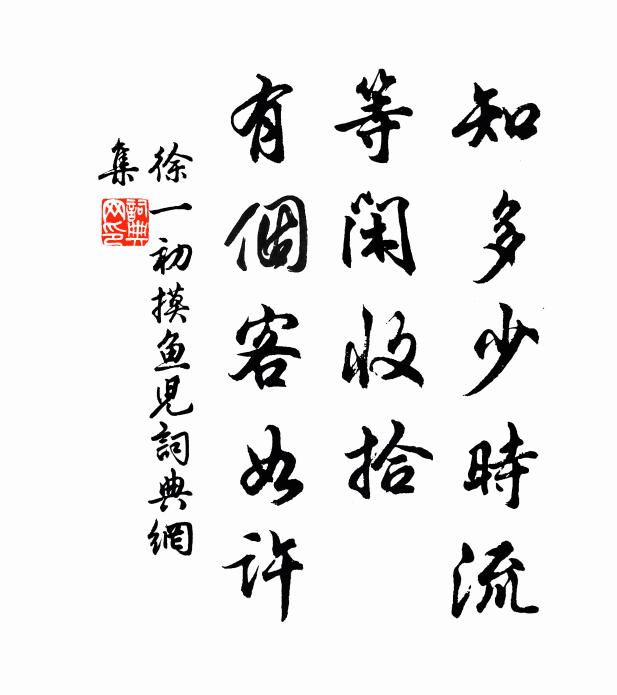 知多少時流
等閑收拾
有個客如許
徐一初摸魚兒詞典網
集
詞典
网印